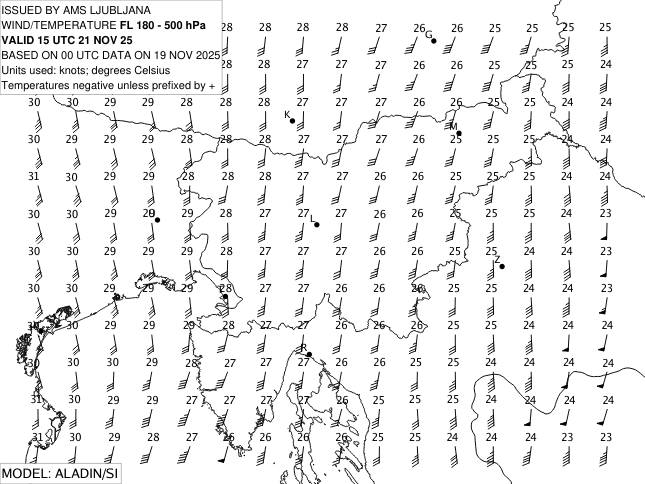 ISSUED BY AMS LJUBLJANA
WIND/TEMPERATURE FL 180 - 500 hPa
VALID 15 UTC 21 NOV 25
BASED ON 00 UTC DATA ON 19 NOV 2025
Units used: knots; degrees Celsius
Temperatures negative unless prefixed by +
28 28 28 28 27 26 26 25 25 25 25
G
28 28 28 27 27 26 26 25 25 25 24
30 30 29 29 28 28 27 27 27 26 26 25 25 24 24
K
M
30 29 29 29 28 28 27 27 27 26 25 25 25 24 24
31 30 29 29 28 28 27 27 26 26 25 25 25 24 24
30 30 29 29 28 27 27 27 26 26 25 25 24 23
L
30 30 29 29 29 28 27 27 27 26 25 25 24 24 23
Z
30 30 29 29 29 28 27 27 26 26 26 25 24 24 23
30 29 29 29 28 27 27 26 26 26 25 24 24 24
R
30 30 30 29 28 27 27 27 26 26 25 25 24 24 24
31 30 29 29 27 27 27 26 26 25 25 25 24 24 24
31 30 29 28 27 26 26 26 26 25 25 24 24 23 23
MODEL: ALADIN/SI